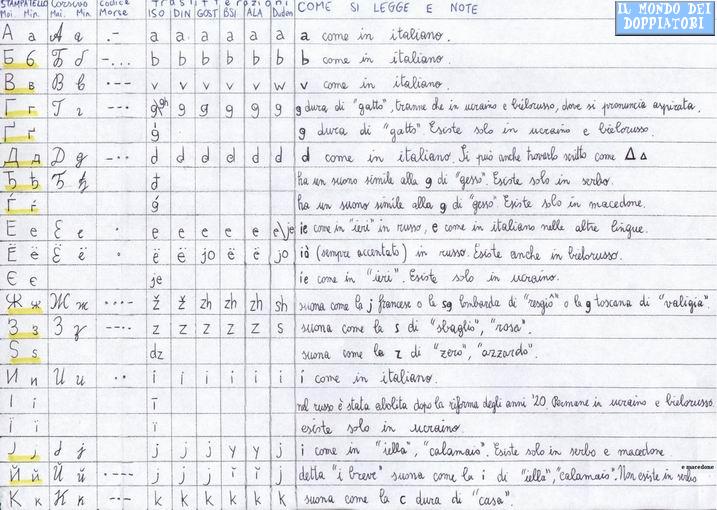 STAMPATELLO CORSIVO Codice Traslitterazioni COME SI LEGGE E NOTE IL MONDO DEI DOPPIATORI
Mai. Min. Mai. Min. Morse ISO DIN GOST BSI ALA Duden
А а А а .- a a a a a a a come in italiano.
Б б Б б -... b b b b b b b come in italiano.
В в В в .-- v v v v v w v come in italiano.
Г г Г г --. g\gh g g g g g g dura di "gatto", tranne che in ucraino e bielorusso, dove si pronuncia aspirata.
Ґ ґ ġ g dura di "gatto". Esiste solo in ucraino e bielorusso.
Д д Д д -.. d d d d d d d come in italiano. Si può anche trovarlo scritto come Δ Δ
Ђ ђ Ђ ђ đ ha un suono simile alla g di "gesso". Esiste solo in serbo.
Ѓ ѓ ǵ ha un suono simile alla g di "gesso". Esiste solo in macedone.
Е е Е е . e e e e e e\je ie come in "ieri" in russo, e come in italiano nelle altre lingue.
Ё ё Ё ё . ë ë jo ë ë jo iò (sempre accentato) in russo. Esiste anche in bielorusso.
Є є je ie come in "ieri". Esiste solo in ucraino.
Ж ж Ж ж ...- ž ž zh zh zh sh suona come la j francese o la sg lombarda di "resgiô" o la g toscana di "valigia".
З з З з --.. z z z z z s suona come la s di "sbaglio", "rosa".
Ѕ ѕ dz suona come la z di "zero", "azzardo".
И и И и .. i i i i i i i come in italiano.
І і ī nel russo è stata abolita dopo la riforma degli anni '20. Permane in ucraino e bielorusso.
Ї ї ï esiste solo in ucraino.
Ј ј Ј ј j j j y y j i come in "iella", "calamaio". Esiste solo in serbo e macedone
Й й Й й .--- j j j ĭ ĭ j detta "i breve" suona come la i di "iella", "calamaio". Non esiste in serbo e macedone
К к К к -.- k k k k k k suona come la c dura di "casa".